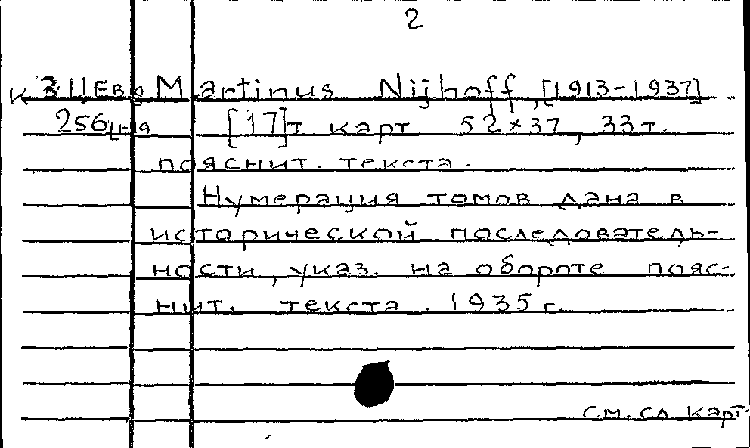 2
К 3 Цев Martinus Nijhoff, [1913-1937]
256 [17]т карт 52×37, 33т.
пояснит. текста.
Нумерация томов дана в
исторической последователь-
ности, указ. на обороте пояс-
нит. текста. 1935 г.
см. сл карт